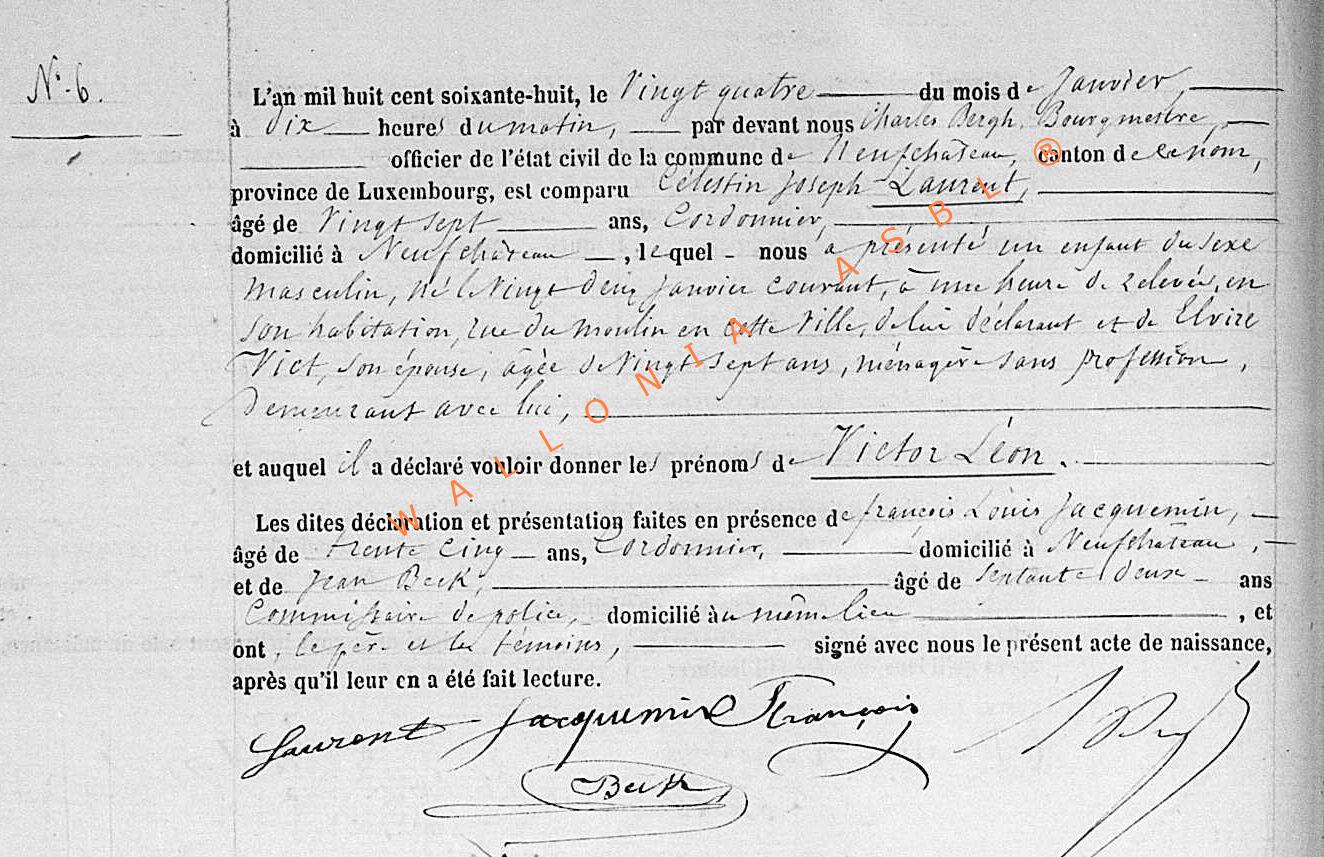 N° 6.
L'an mil huit cent soixante-huit, le Vingt quatre du mois de Janvier,
à Dix heures du matin, par devant nous Charles Bergh, Bourgmestre,
officier de l'état civil de la commune de Neufchâteau, canton de ce nom,
province de Luxembourg, est comparu Célestin Joseph Laurent,
âgé de Vingt sept ans, Cordonnier,
domicilié à Neufchâteau, lequel nous a présenté un enfant du sexe
masculin, né le Vingt deux Janvier courant, à une heure de relevée, en
son habitation, rue du Moulin en cette Ville, de lui déclarant et de Elvire
Vict, son épouse, agée de Vingt sept ans, ménagère sans profession,
Demeurant avec lui,
et auquel il a déclaré vouloir donner les prénoms de Victor Léon.
Les dites déclaration et présentation faites en présence de françois Louis Jacquemin,
âgé de trente cinq ans, Cordonnier, domicilié à Neufchâteau,
et de Jean Beck, âgé de Septante deux ans
Commissaire de police, domicilié au même lieu, et
ont, le père et les témoins, signé avec nous le présent acte de naissance,
après qu'il leur en a été fait lecture.
Laurent Jacquemin François
Beck
WALLONIA ASBL ®